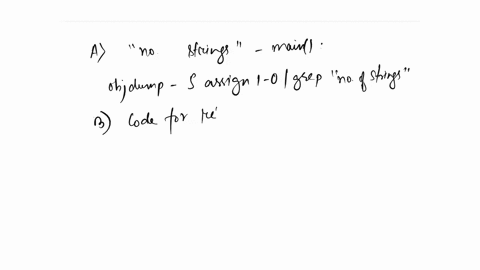 A) "no. strings" - main().
objdump - S assign 1-0 | grep "no. of strings"
B) Code for